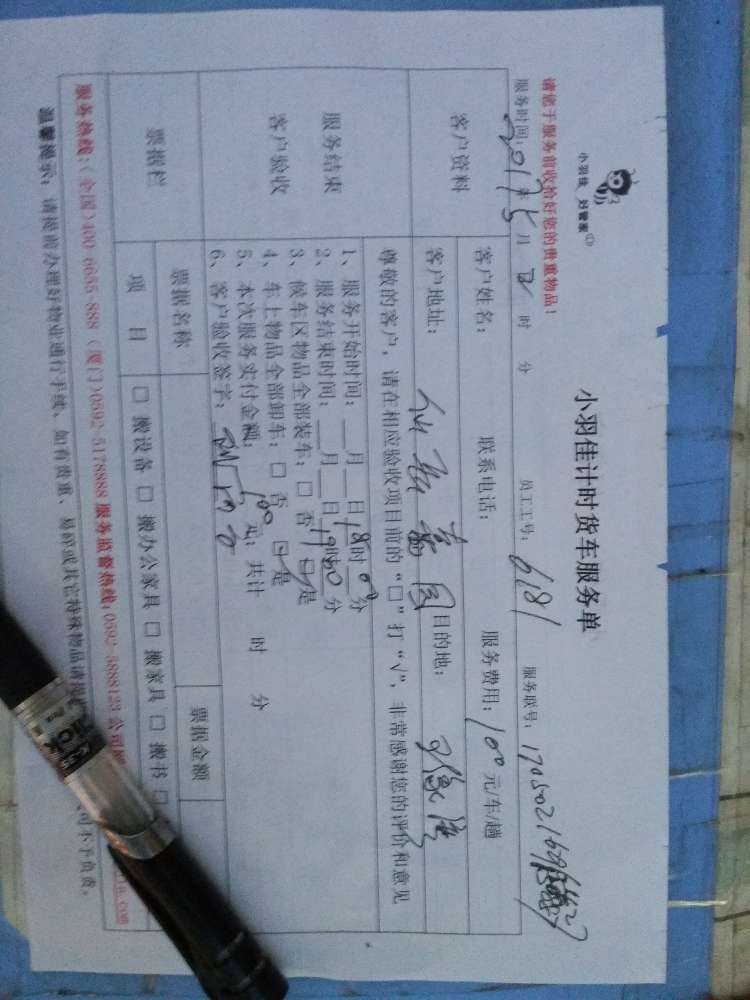 小羽佳 好管家
小羽佳计时货车服务单
请您于服务前收拾好您的贵重物品！
服务时间：2017年5月 日 时 分 员工工号：6181 服务联号：
客户资料
客户姓名： 联系电话： 服务费用：100元/车/趟
客户地址： 目的地：
服务结束
客户验收
尊敬的客户，请在相应验收项目前的“□”打“√”，非常感谢您的评价和意见
1、服务开始时间：__月__日18时0分
2、服务结束时间：__月__日19时30分
3、候车区物品全部装车：□ 否 ☑是
4、车上物品全部卸车：□ 否 ☑是
5、本次服务实付金额：100元；共计 时 分
6、客户验收签字：
票据栏
票据名称 票据金额
项 目 □ 搬设备 □ 搬办公家具 □ 搬家具 □ 搬书 □
服务热线：(全国)400-6655-888 (厦门)0592-5178888 服务监督热线：0592-5888123 公司网
.com
温馨提示：请提前办理好物业通行手续，如有贵重、易碎或其它特殊物品请提
可不予负责。
K-35